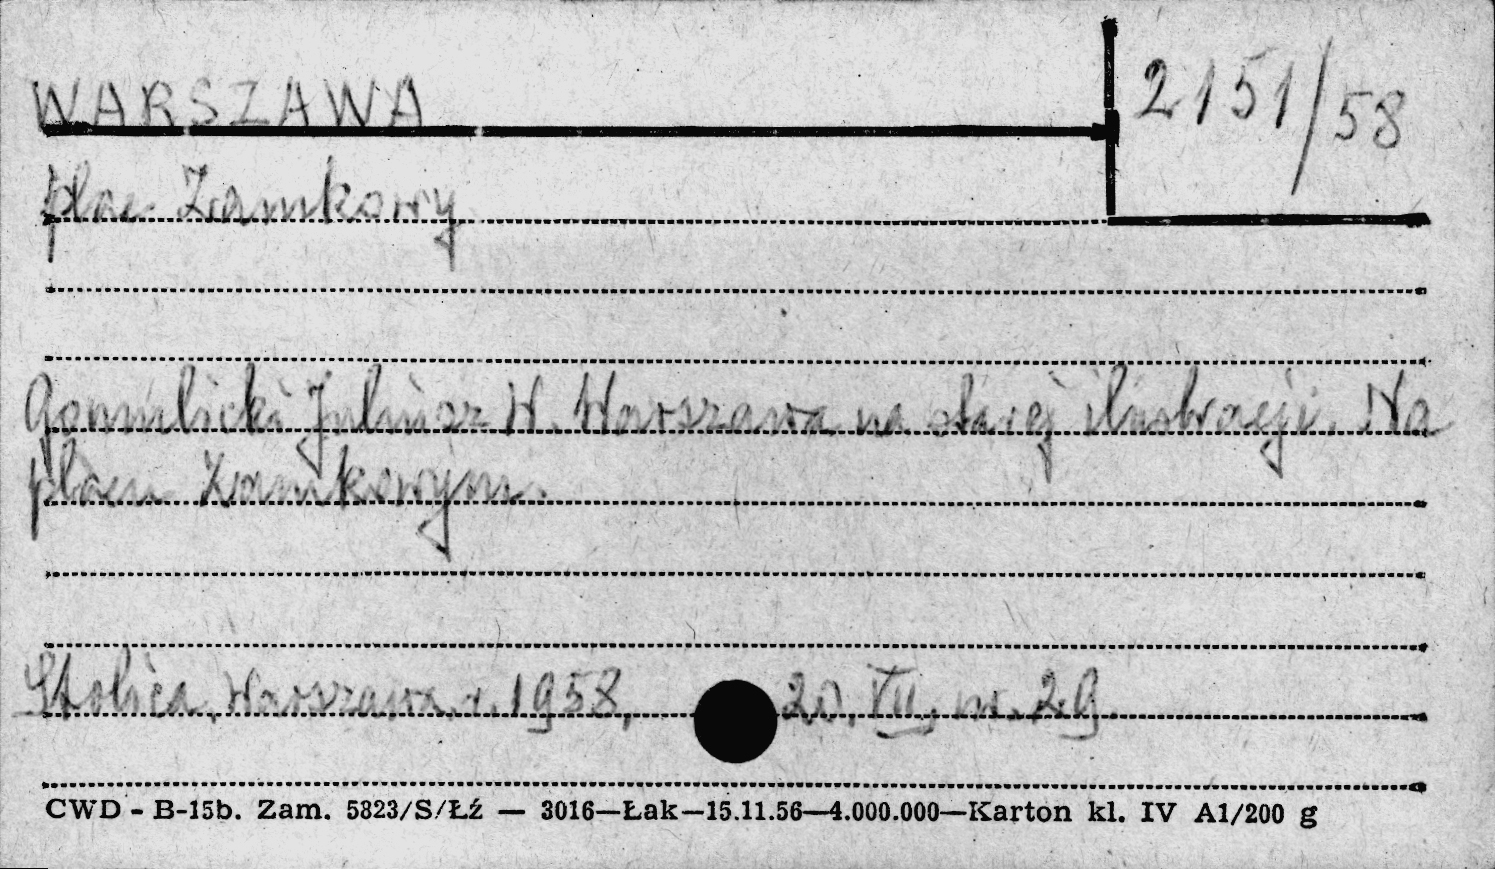 WARSZAWA
2151/58
plac Zamkowy
Gomulicki Juliusz W. Warszawa na starej ilustracji. Na
placu Zamkowym.
Stolica, Warszawa, r. 1958, 20. VII, nr. 29.
CWD - B-15b. Zam. 5823/S/Łź — 3016—Łak—15.11.56—4.000.000—Karton kl. IV A1/200 g